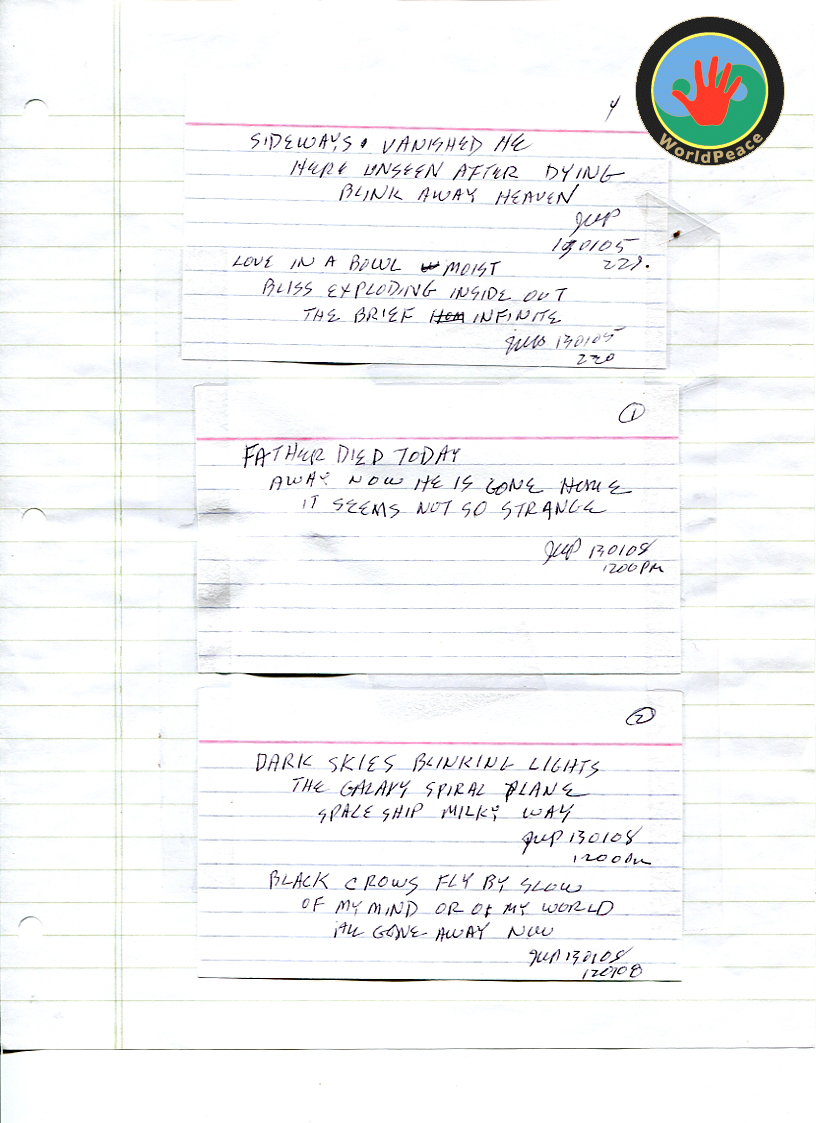 WorldPeace
4
SIDEWAYS VANISHED HE
HERE UNSEEN AFTER DYING
BLINK AWAY HEAVEN
JWP
130105
LOVE IN A BOWL MOIST
BLISS EXPLODING INSIDE OUT
THE BRIEF INFINITE
130105
220
1
FATHER DIED TODAY
AWAY NOW HE IS GONE HOME
IT SEEMS NOT SO STRANGE
JWP 130108
1200 PM
2
DARK SKIES BLINKING LIGHTS
THE GALAXY SPIRAL PLANE
SPACE SHIP MILKY WAY
JWP 130108
1200 PM
BLACK CROWS FLY BY SLOW
OF MY MIND OR OF MY WORLD
ALL GONE AWAY NOW
JWP 130108